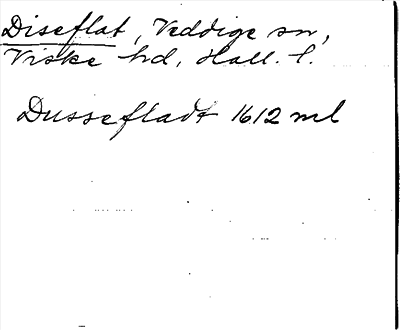 Diseflat, Veddige sn,
Viske hd, Hall. l.
Dussefladt 1612 ml